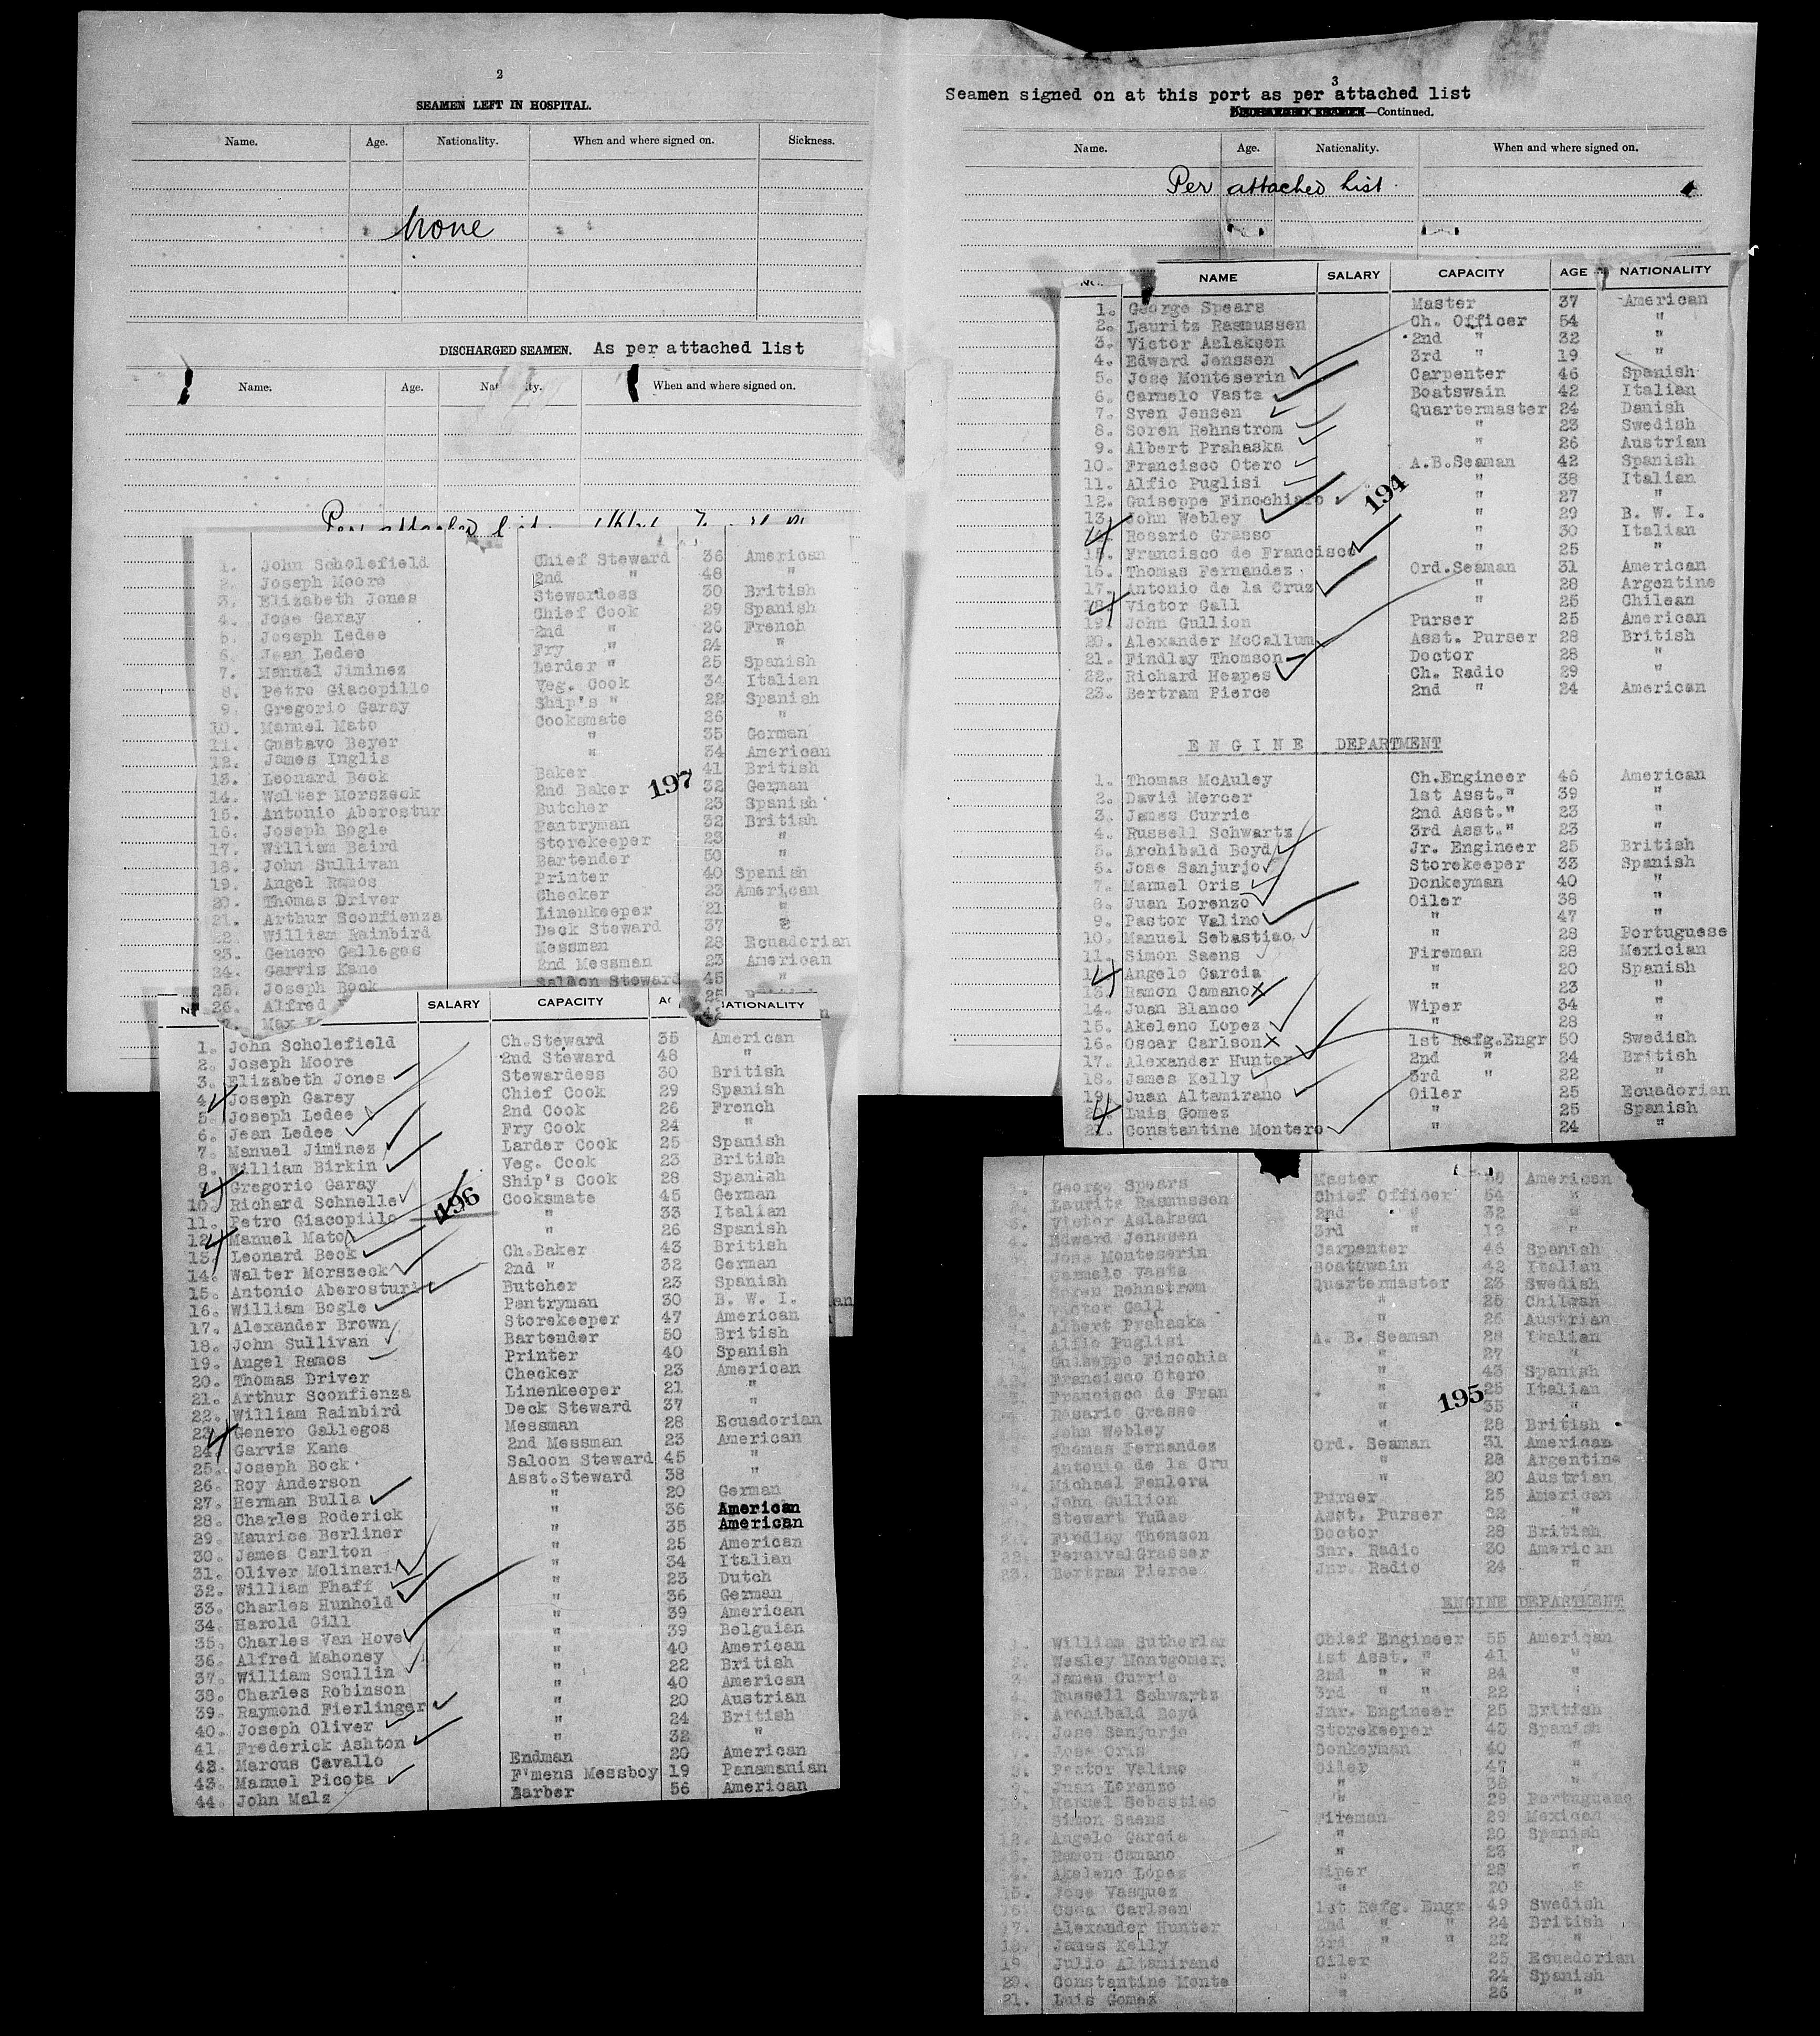 2
SEAMEN LEFT IN HOSPITAL.
Name. Age. Nationality. When and where signed on. Sickness.
None
DISCHARGED SEAMEN. As per attached list
Name. Age. When and where signed on.
Per attached
1. John Scholefield Chief Steward 36 American
2. Joseph Moore 2nd " 48 "
3. Elizabeth Jones Stewardess 30 British
4. Jose Garay Chief Cook 29 Spanish
5. Joseph Ledee 2nd " 26 French
6. Jean Ledee Fry " 24 "
7. Manuel Jiminez Larder " 25 Spanish
8. Petro Giacopillo Veg. Cook 34 Italian
9. Gregorio Garay Ship's " 28 Spanish
10. Manuel Mato Cooksmate 26 "
11. Gustavo Beyer " 35 German
12. James Inglis " 34 American
13. Leonard Beck Baker 41 British
14. Walter Morszeck 2nd Baker 32 German
197
15. Antonio Aberostur Butcher 23 Spanish
16. Joseph Bogle Pantryman 32 British
17. William Baird Storekeeper 23 "
18. John Sullivan Bartender 50 "
19. Angel Ramos Printer 40 Spanish
20. Thomas Driver Checker 23 American
21. Arthur Sconfienza Linenkeeper 21 "
22. William Rainbird Deck Steward 37 "
23. Genero Gallegos Messman 28 Ecuadorian
24. Garvis Kane 2nd Messman 23 American
25. Joseph Bock Saloon Steward 45 "
26. Alfred 25
Max
SALARY CAPACITY NATIONALITY
1. John Scholefield Ch.Steward 35 American
2. Joseph Moore 2nd Steward 48 "
3. Elizabeth Jones Stewardess 30 British
4. Joseph Garey Chief Cook 29 Spanish
5. Joseph Ledee 2nd Cook 26 French
6. Jean Ledee Fry Cook 24 "
7. Manuel Jiminez Larder Cook 25 Spanish
8. William Birkin Veg. Cook 23 British
9. Gregorio Garay Ship's Cook 28 Spanish
10. Richard Schnelle Cooksmate 45 German
196
11. Petro Giacopillo " 33 Italian
12. Manuel Mato " 26 Spanish
13. Leonard Beck Ch.Baker 43 British
14. Walter Morszeck 2nd " 32 German
15. Antonio Aberosturi Butcher 23 Spanish
16. William Bogle Pantryman 30 B. W. I.
17. Alexander Brown Storekeeper 47 American
18. John Sullivan Bartender 50 British
19. Angel Ramos Printer 40 Spanish
20. Thomas Driver Checker 23 American
21. Arthur Sconfienza Linenkeeper 21 "
22. William Rainbird Deck Steward 37 "
23. Genero Gallegos Messman 28 Ecuadorian
24. Garvis Kane 2nd Messman 23 American
25. Joseph Bock Saloon Steward 45 "
26. Roy Anderson Asst.Steward 38 "
27. Herman Bulla " 20 German
28. Charles Roderick " 36 American
29. Maurice Berliner " 35 American
30. James Carlton " 25 American
31. Oliver Molinari " 34 Italian
32. William Phaff " 23 Dutch
33. Charles Hunhold " 36 German
34. Harold Gill " 39 American
35. Charles Van Hove " 39 Belguian
36. Alfred Mahoney " 40 American
37. William Scullin " 22 British
38. Charles Robinson " 40 American
39. Raymond Fierlinger " 20 Austrian
40. Joseph Oliver " 24 British
41. Frederick Ashton " 32 "
42. Marcus Cavallo Endman 20 American
43. Manuel Picota F'mens Messboy 19 Panamanian
44. John Malz Barber 56 American
3
Seamen signed on at this port as per attached list
—Continued.
Name. Age. Nationality. When and where signed on.
Per attached list.
NAME SALARY CAPACITY AGE NATIONALITY
1. George Spears Master 37 American
2. Lauritz Rasmussen Ch. Officer 54 "
3. Victor Aslaksen 2nd " 32 "
4. Edward Jenssen 3rd " 19 "
5. Jose Monteserin Carpenter 46 Spanish
6. Carmelo Vasta Boatswain 42 Italian
7. Sven Jensen Quartermaster 24 Danish
8. Soren Rehnstrom " 23 Swedish
9. Albert Prahaska " 26 Austrian
10. Francisco Otero A.B.Seaman 42 Spanish
11. Alfio Puglisi " 38 Italian
12. Guiseppe Finochiaro " 27 "
194
13. John Webley " 29 B. W. I.
14. Rosario Grasso " 30 Italian
15. Francisco de Francisco " 25 "
16. Thomas Fernandez Ord.Seaman 31 American
17. Antonio de la Cruz " 28 Argentine
18. Victor Gall " 25 Chilean
19. John Gullion Purser 25 American
20. Alexander McCallum Asst. Purser 28 British
21. Findlay Thomson Doctor 28 "
22. Richard Heapes Ch. Radio 29 "
23. Bertram Pierce 2nd " 24 American
ENGINE DEPARTMENT
1. Thomas McAuley Ch.Engineer 46 American
2. David Mercer 1st Asst." 39 "
3. James Currie 2nd Asst." 23 "
4. Russell Schwartz 3rd Asst." 23 "
5. Archibald Boyd Jr. Engineer 25 British
6. Jose Sanjurjo Storekeeper 33 Spanish
7. Manuel Oris Donkeyman 40 "
8. Juan Lorenzo Oiler 38 "
9. Pastor Valino " 47 "
10. Manuel Sebastiao " 28 Portuguese
11. Simon Saens Fireman 28 Mexician
12. Angelo Garcia " 20 Spanish
13. Ramon Camano " 23 "
14. Juan Blanco Wiper 34 "
15. Akeleno Lopez " 28 "
16. Oscar Carlson 1st Refg.Engr 50 Swedish
17. Alexander Hunter 2nd " 24 British
18. James Kelly 3rd " 22 "
19. Juan Altamirano Oiler 25 Ecuadorian
20. Luis Gomez " 25 Spanish
21. Constantine Montero " 24 "
George Spears Master 38 American
Lauritz Rasmussen Chief Officer 54 "
Victor Aslaksen 2nd " 32 "
4. Edward Jenssen 3rd " 19 "
Jose Monteserin Carpenter 46 Spanish
Carmelo Vasta Boatswain 42 Italian
Soren Rehnstrom Quartermaster 23 Swedish
Victor Gall " 25 Chilean
Albert Prahaska " 26 Austrian
Alfio Puglisi A. B. Seaman 28 Italian
Guiseppe Finochia " 27 "
Francisco Otero " 43 Spanish
Francisco de Fran " 25 Italian
195
Rosario Grasso " 35 "
John Webley " 28 British
Thomas Fernandez Ord. Seaman 31 American
Antonio de la Cru " 28 Argentine
Michael Fenlora " 20 Austrian
John Gullion Purser 25 American
Stewart Yunas Asst. Purser 32 "
Findlay Thomson Doctor 28 British
22. Percival Grasser Snr. Radio 30 American
23. Bertram Pierce Jnr. Radio 24 "
ENGINE DEPARTMENT
1. William Sutherlan Chief Engineer 55 American
2. Wesley Montgomer 1st Asst. " 41 "
3. James Currie 2nd " " 24 "
4. Russell Schwartz 3rd " " 22 "
5. Archibald Boyd Jnr. Engineer 25 British
Jose Sanjurjo Storekeeper 43 Spanish
Jose Oris Donkeyman 40 "
8. Pastor Valino Oiler 47 "
9. Juan Lorenzo " 38 "
10. Manuel Sebastiao " 29 Portuguese
Simon Saens Fireman 29 Mexican
12. Angelo Garcia " 20 Spanish
Ramon Camano " 23 "
Akeleno Lopez Wiper 28 "
15. Jose Vasquez " 20 "
16. Oscar Carlsen 1st Refg. Engr 49 Swedish
17. Alexander Hunter 2nd " " 24 British
18. James Kelly 3rd " " 22 "
19. Julio Altamirano Oiler 25 Ecuadorian
20. Constantine Monte " 24 Spanish
21. Luis Gomez " 26 "